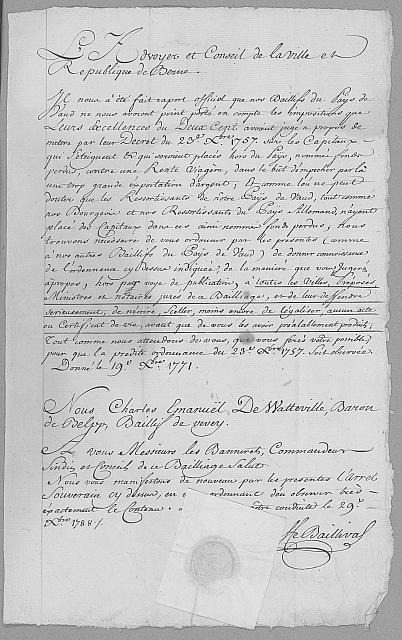 L'Advoyer et Conseil de la Ville et
Republique de Berne.
Il nous a été fait raport officiel que nos Baillifs du Pays de
Vaud ne nous avoient point porté en compte les impositions que
Leurs Excellences du Deux Cent avoient jugé a propos de
metre par leur Decret du 23e Xbre 1757. sur les Capitaux
qui s'eteignent & qui seroient placés hors du Pays, nommé fonds
perdus, contre une Rente Viagère, dans le but d'empecher par là
une trop grande exportation d'argent; & comme l'on ne peut
douter que les Ressortissants de nôtre Pays de Vaud, tout comme
nos Bourgeois et nos Ressortissants du Pays Allemand, n'ayent
placé des Capitaux dans ces ainsi nommé fonds perdus; Nous
trouvons necessaire de vous ordonner par les presentes (comme
à nos autres Baillifs du Pays de Vaud) de donner connoissance
de l'ordonnance cy dessus indiquée, de la maniere que vous jugerez
apropos, hors par voye de publication, a toutes les Villes, Preposés
Ministres et notaires jurés de ce Bailliage, et de leur deffendre
serieusement, de n'écrire, Seeller, moins encore de légaliser aucun acte
ou Certificat de vie, avant que de vous les avoir préalablement produits;
Tout comme nous attendons de vous, que vous ferés votre possible,
pour que la prédite ordonnance du 23e Xbre 1757. soit observée.
Donné le 19e Xbre 1771.
Nous Charles Emanuël De Watteville, Baron
de Belpp, Baillif de Vevey.
A vous Messieurs les Bannerets, Commandeur
Sindics et Conseils de ce Bailliage Salut.
Nous vous manifestons de nouveau par les presentes l'Arret
Souverain cy dessus, en ordonnant d'en observer très
exactement le Contenu. conduite le 29e
Xbre 1788.
Baillival